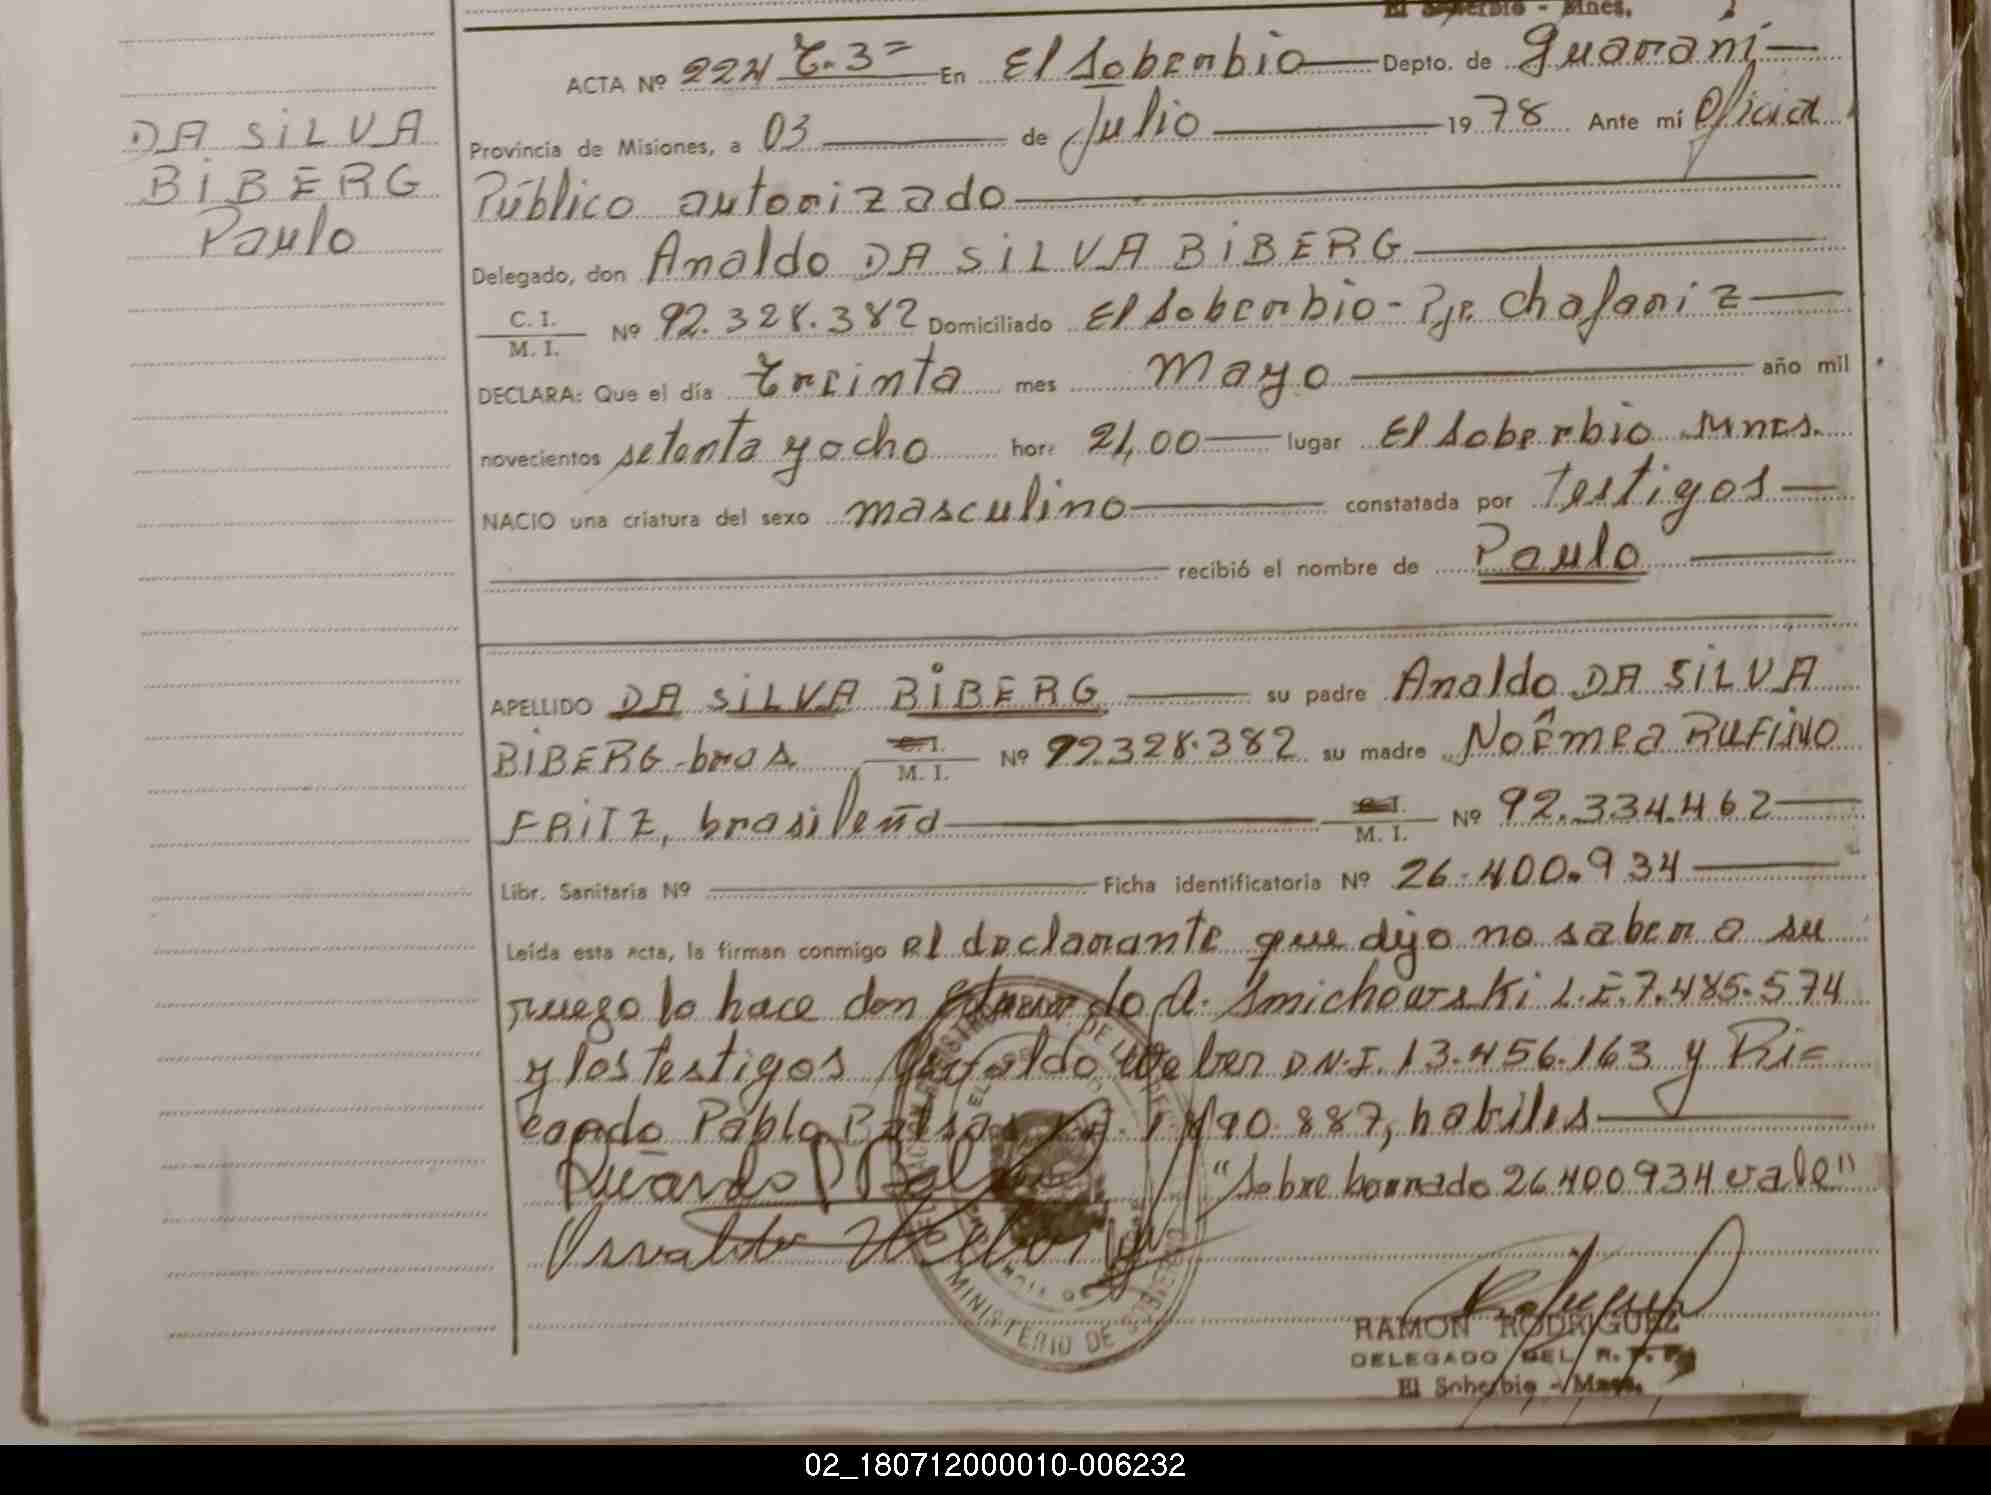 El Soberbio - Mnes.
ACTA Nº 224 T. 3= En El Soberbio Depto. de Guaraní
Provincia de Misiones, a 03 de Julio 1978 Ante mí Oficial
Público autorizado
Delegado, don Analdo DA SILVA BIBERG
C. I.
M. I. Nº 92.328.382 Domiciliado El Soberbio - Pje. Chafariz
DECLARA: Que el día Treinta mes Mayo año mil
novecientos setenta y ocho hora 21,00 lugar El Soberbio Mnes.
NACIO una criatura del sexo masculino constatada por Testigos
recibió el nombre de Paulo
APELLIDO DA SILVA BIBERG su padre Analdo DA SILVA
BIBERG bras C. I. M. I. Nº 92.328.382 su madre Noêmea RUFINO
FRITZ, brasileña C. I. M. I. Nº 92.334.462
Libr. Sanitaria Nº Ficha identificatoria Nº 26.400.934
Leída esta acta, la firman conmigo el declarante que dijo no saber a su
ruego lo hace don A. Smichowski L.E. 7.485.574
y los testigos Weber D.N.I. 13.456.163 y Ri=
cardo Pablo 490.887, habiles
Ricardo P
"Sobre borrado 26400934 vale"
Osvaldo
MINISTERIO DE GOBIERNO
RAMON RODRIGUEZ
DELEGADO DEL R. P. P.
El Soberbio - Mnes.
DA SILVA
BIBERG
Paulo
02_180712000010-006232